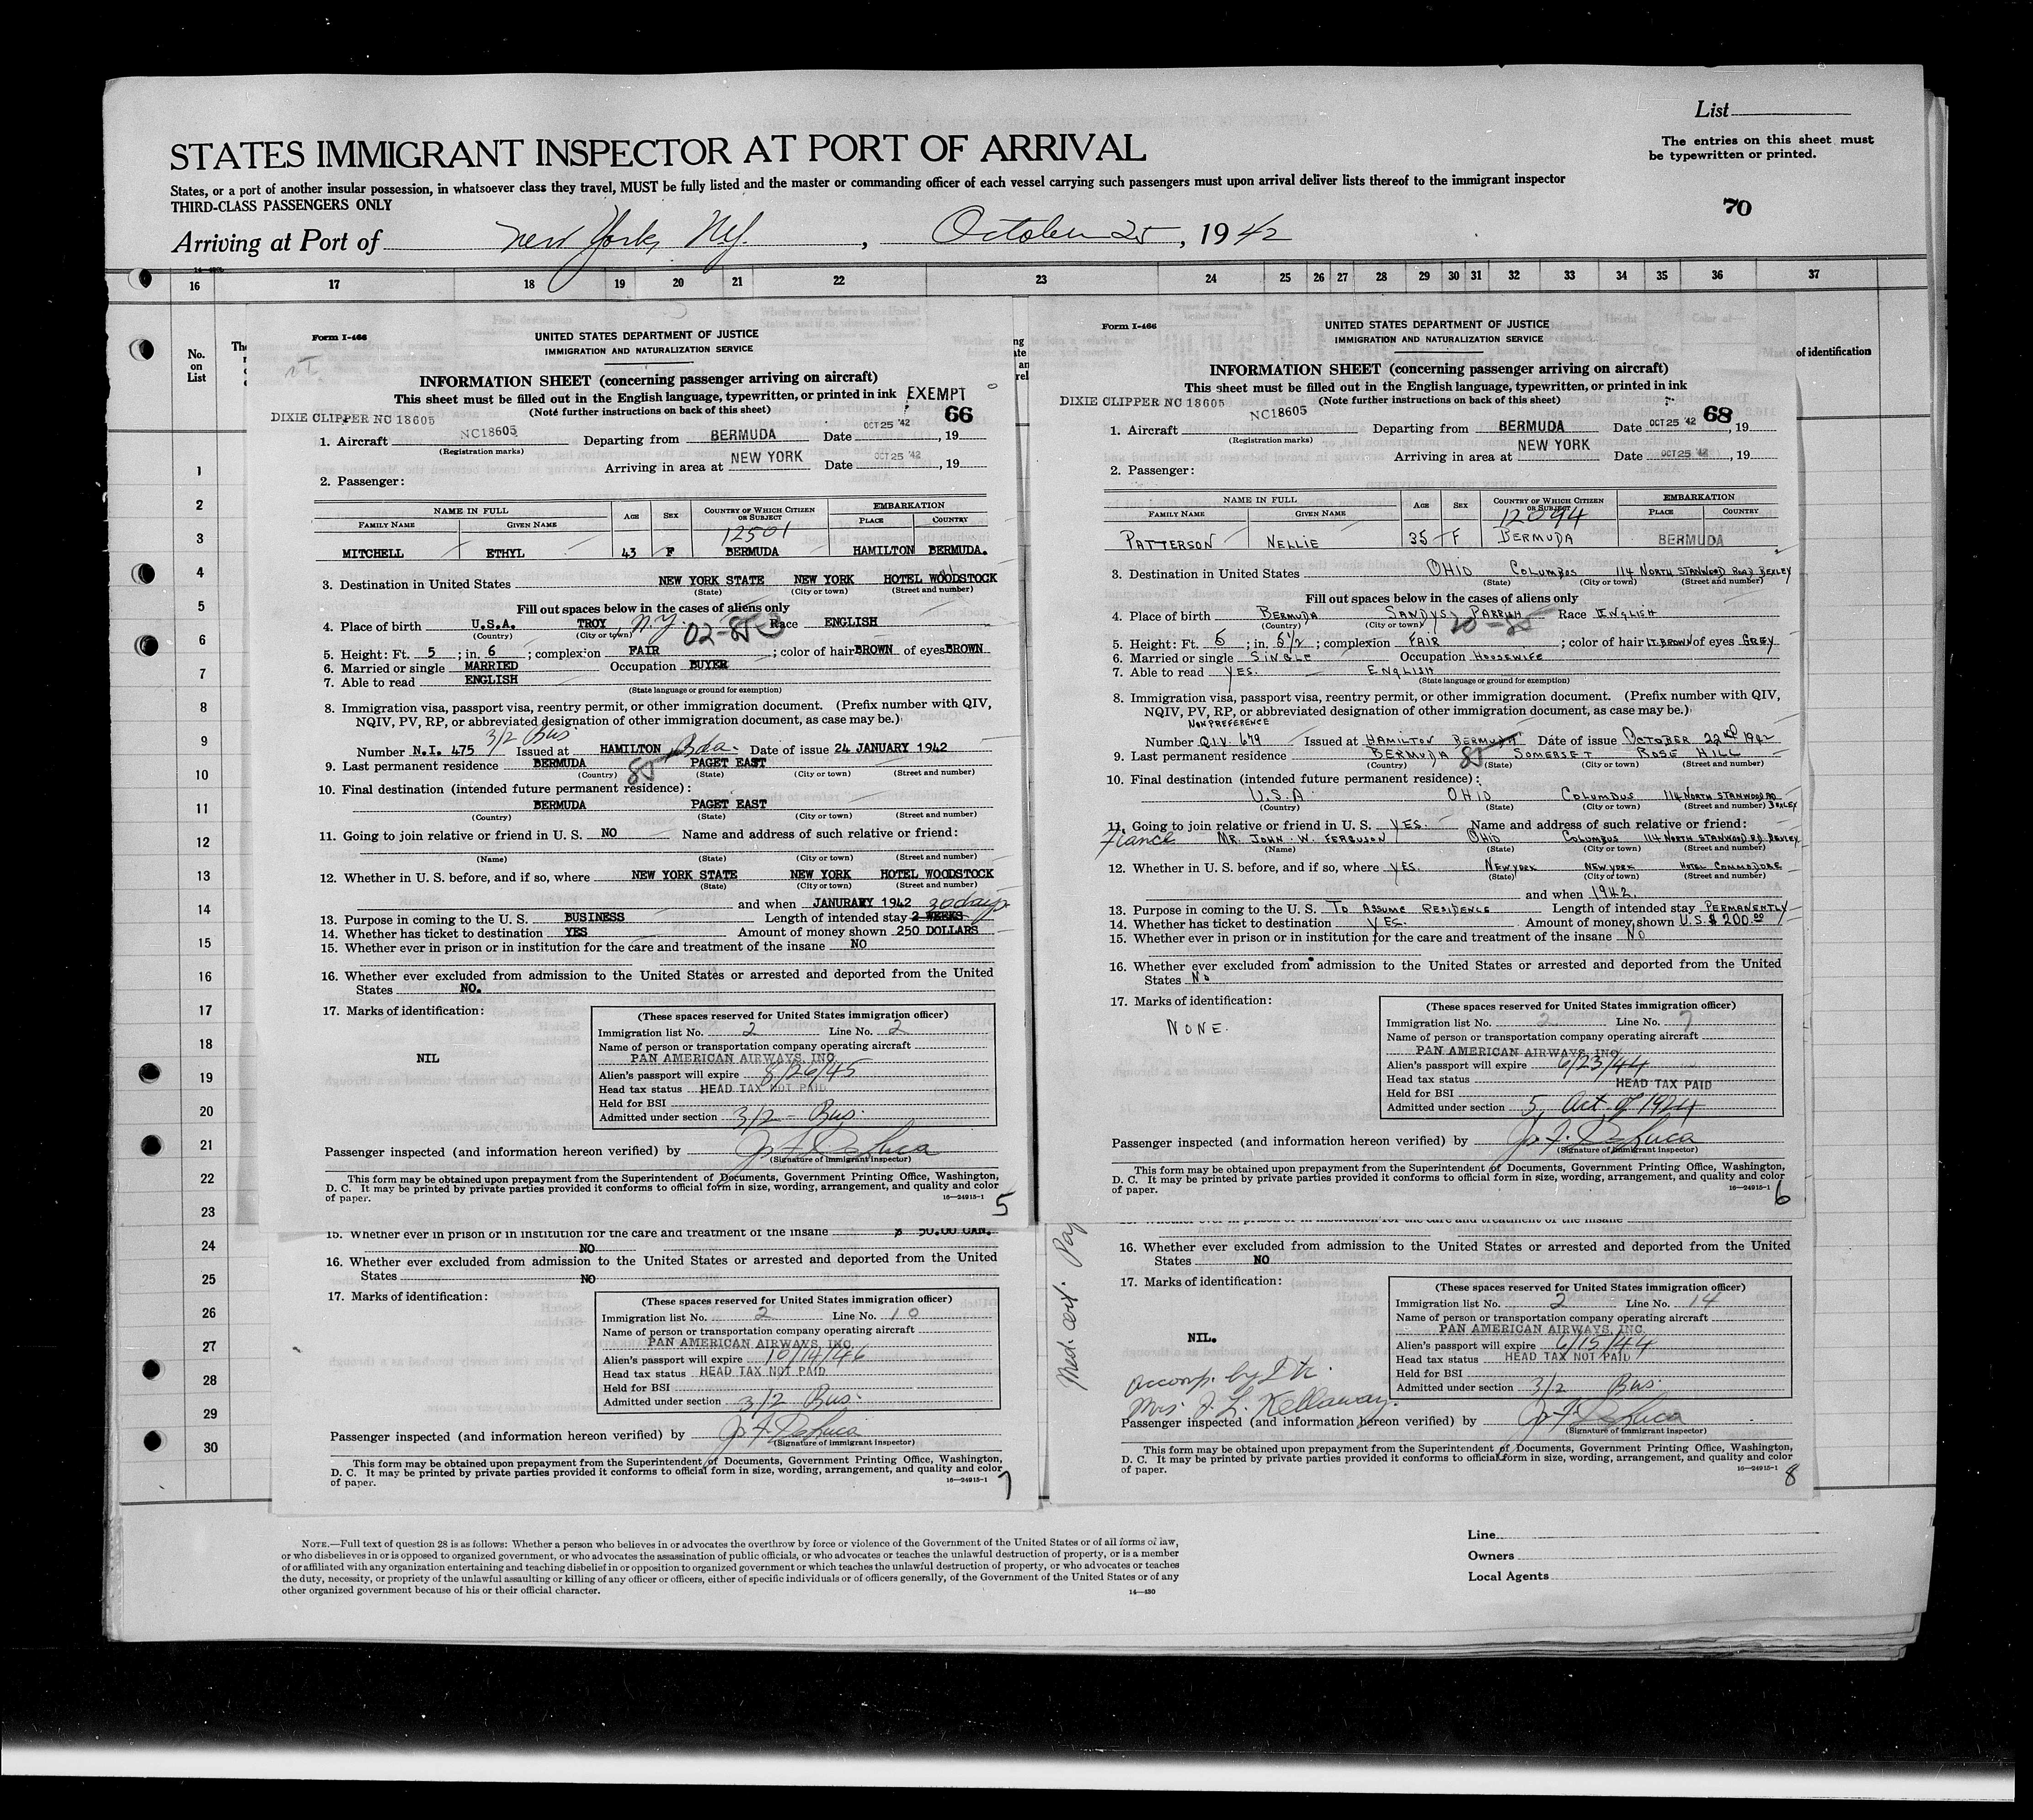 List
The entries on this sheet must
be typewritten or printed.
STATES IMMIGRANT INSPECTOR AT PORT OF ARRIVAL
States, or a port of another insular possession, in whatsoever class they travel, MUST be fully listed and the master or commanding officer of each vessel carrying such passengers must upon arrival deliver lists thereof to the immigrant inspector
THIRD-CLASS PASSENGERS ONLY
70
Arriving at Port of New York, N.Y., October 25, 1942
16 17 18 19 20 21 22 23 24 25 26 27 28 29 30 31 32 33 34 35 36 37
No.
on
List
of identification
1
2
3
4
5
6
7
8
9
10
11
12
13
14
15
16
17
18
19
20
21
22
23
24
25
26
27
28
29
30
Form I-466
UNITED STATES DEPARTMENT OF JUSTICE
IMMIGRATION AND NATURALIZATION SERVICE
INFORMATION SHEET (concerning passenger arriving on aircraft)
This sheet must be filled out in the English language, typewritten, or printed in ink EXEMPT
(Note further instructions on back of this sheet) 66
DIXIE CLIPPER NC 18605
1. Aircraft NC18605 Departing from BERMUDA Date OCT 25 '42, 19
(Registration marks)
Arriving in area at NEW YORK Date OCT 25 '42, 19
2. Passenger:
NAME IN FULL AGE SEX COUNTRY OF WHICH CITIZEN OR SUBJECT EMBARKATION
FAMILY NAME GIVEN NAME PLACE COUNTRY
12501
MITCHELL ETHYL 43 F BERMUDA HAMILTON BERMUDA.
3. Destination in United States NEW YORK STATE NEW YORK HOTEL WOODSTOCK
(State) (City or town) (Street and number)
Fill out spaces below in the cases of aliens only
4. Place of birth U.S.A. TROY N.Y. Race ENGLISH
(Country) (City or town)
5. Height: Ft. 5; in. 6; complexion FAIR; color of hair BROWN of eyes BROWN
6. Married or single MARRIED Occupation BUYER
7. Able to read ENGLISH
(State language or ground for exemption)
8. Immigration visa, passport visa, reentry permit, or other immigration document. (Prefix number with QIV,
NQIV, PV, RP, or abbreviated designation of other immigration document, as case may be.)
3/2 Bus
Number N.I. 475 Issued at HAMILTON Bda. Date of issue 24 JANUARY 1942
9. Last permanent residence BERMUDA PAGET EAST
(Country) (State) (City or town) (Street and number)
10. Final destination (intended future permanent residence):
BERMUDA PAGET EAST
(Country) (State) (City or town) (Street and number)
11. Going to join relative or friend in U. S. NO Name and address of such relative or friend:
(Name) (State) (City or town) (Street and number)
12. Whether in U. S. before, and if so, where NEW YORK STATE NEW YORK HOTEL WOODSTOCK
(State) (City or town) (Street and number)
and when JANURARY 1942 30 days
13. Purpose in coming to the U. S. BUSINESS Length of intended stay 2 WEEKS
14. Whether has ticket to destination YES Amount of money shown 250 DOLLARS
15. Whether ever in prison or in institution for the care and treatment of the insane NO
16. Whether ever excluded from admission to the United States or arrested and deported from the United
States NO.
17. Marks of identification:
NIL
(These spaces reserved for United States immigration officer)
Immigration list No. 2 Line No. 2
Name of person or transportation company operating aircraft
PAN AMERICAN AIRWAYS, INC.
Alien's passport will expire 8/26/45
Head tax status HEAD TAX NOT PAID
Held for BSI
Admitted under section 3/2 - Bus.
Passenger inspected (and information hereon verified) by J. F. DeLuca
(Signature of immigrant inspector)
This form may be obtained upon prepayment from the Superintendent of Documents, Government Printing Office, Washington,
D. C. It may be printed by private parties provided it conforms to official form in size, wording, arrangement, and quality and color
of paper. 16—24915-1
5
15. Whether ever in prison or in institution for the care and treatment of the insane $ 50.00 CAN.
NO
16. Whether ever excluded from admission to the United States or arrested and deported from the United
States NO
17. Marks of identification:
(These spaces reserved for United States immigration officer)
Immigration list No. 2 Line No. 10
Name of person or transportation company operating aircraft
PAN AMERICAN AIRWAYS, INC.
Alien's passport will expire 10/14/46
Head tax status HEAD TAX NOT PAID
Held for BSI
Admitted under section 3/2 Bus.
Passenger inspected (and information hereon verified) by J. F. DeLuca
(Signature of immigrant inspector)
This form may be obtained upon prepayment from the Superintendent of Documents, Government Printing Office, Washington,
D. C. It may be printed by private parties provided it conforms to official form in size, wording, arrangement, and quality and color
of paper. 16—24915-1
7
Form I-466
UNITED STATES DEPARTMENT OF JUSTICE
IMMIGRATION AND NATURALIZATION SERVICE
INFORMATION SHEET (concerning passenger arriving on aircraft)
This sheet must be filled out in the English language, typewritten, or printed in ink
(Note further instructions on back of this sheet)
DIXIE CLIPPER NC 18605 68
1. Aircraft NC18605 Departing from BERMUDA Date OCT 25 '42, 19
(Registration marks)
Arriving in area at NEW YORK Date OCT 25 '42, 19
2. Passenger:
NAME IN FULL AGE SEX COUNTRY OF WHICH CITIZEN OR SUBJECT EMBARKATION
FAMILY NAME GIVEN NAME PLACE COUNTRY
12094
PATTERSON NELLIE 35 F BERMUDA BERMUDA
3. Destination in United States OHIO COLUMBUS 114 NORTH STANWOOD ROAD BEXLEY
(State) (City or town) (Street and number)
Fill out spaces below in the cases of aliens only
4. Place of birth BERMUDA SANDYS PARRISH Race ENGLISH
(Country) (City or town)
5. Height: Ft. 5; in. 5 1/2; complexion FAIR; color of hair LT. BROWN of eyes GREY
6. Married or single SINGLE Occupation HOUSEWIFE
7. Able to read YES. ENGLISH
(State language or ground for exemption)
8. Immigration visa, passport visa, reentry permit, or other immigration document. (Prefix number with QIV,
NQIV, PV, RP, or abbreviated designation of other immigration document, as case may be.)
NONPREFERENCE
Number Q.I.V. 679 Issued at HAMILTON BERMUDA Date of issue OCTOBER 22nd 1942
9. Last permanent residence BERMUDA SOMERSET ROSE HILL
(Country) (State) (City or town) (Street and number)
10. Final destination (intended future permanent residence):
U.S.A OHIO COLUMBUS 114 NORTH STANWOOD RD BEXLEY
(Country) (State) (City or town) (Street and number)
11. Going to join relative or friend in U. S. YES. Name and address of such relative or friend:
Fiance MR. JOHN W. FERGUSON OHIO COLUMBUS 114 NORTH STANWOOD RD. BEXLEY
(Name) (State) (City or town) (Street and number)
12. Whether in U. S. before, and if so, where YES. NEW YORK NEW YORK HOTEL COMMODORE
(State) (City or town) (Street and number)
and when 1942.
13. Purpose in coming to the U. S. TO ASSUME RESIDENCE Length of intended stay PERMANENTLY
14. Whether has ticket to destination YES. Amount of money shown U.S. $ 200.00
15. Whether ever in prison or in institution for the care and treatment of the insane NO
16. Whether ever excluded from admission to the United States or arrested and deported from the United
States NO
17. Marks of identification:
NONE.
(These spaces reserved for United States immigration officer)
Immigration list No. 2 Line No. 7
Name of person or transportation company operating aircraft
PAN AMERICAN AIRWAYS, INC.
Alien's passport will expire 6/23/44
Head tax status HEAD TAX PAID
Held for BSI
Admitted under section 5, Act of 1924
Passenger inspected (and information hereon verified) by J. F. DeLuca
(Signature of immigrant inspector)
This form may be obtained upon prepayment from the Superintendent of Documents, Government Printing Office, Washington,
D. C. It may be printed by private parties provided it conforms to official form in size, wording, arrangement, and quality and color
of paper. 16—24915-1
6
Med. cert.
16. Whether ever excluded from admission to the United States or arrested and deported from the United
States NO
17. Marks of identification:
NIL.
accomp. by
Mrs. J. L. Kellaway.
(These spaces reserved for United States immigration officer)
Immigration list No. 2 Line No. 14
Name of person or transportation company operating aircraft
PAN AMERICAN AIRWAYS, INC.
Alien's passport will expire 6/15/44
Head tax status HEAD TAX NOT PAID
Held for BSI
Admitted under section 3/2 Bus.
Passenger inspected (and information hereon verified) by J. F. DeLuca
(Signature of immigrant inspector)
This form may be obtained upon prepayment from the Superintendent of Documents, Government Printing Office, Washington,
D. C. It may be printed by private parties provided it conforms to official form in size, wording, arrangement, and quality and color
of paper. 16—24915-1
8
NOTE.—Full text of question 28 is as follows: Whether a person who believes in or advocates the overthrow by force or violence of the Government of the United States or of all forms of law,
or who disbelieves in or is opposed to organized government, or who advocates the assassination of public officials, or who advocates or teaches the unlawful destruction of property, or is a member
of or affiliated with any organization entertaining and teaching disbelief in or opposition to organized government or which teaches the unlawful destruction of property, or who advocates or teaches
the duty, necessity, or propriety of the unlawful assaulting or killing of any officer or officers, either of specific individuals or of officers generally, of the Government of the United States or of any
other organized government because of his or their official character. 14—430
Line
Owners
Local Agents